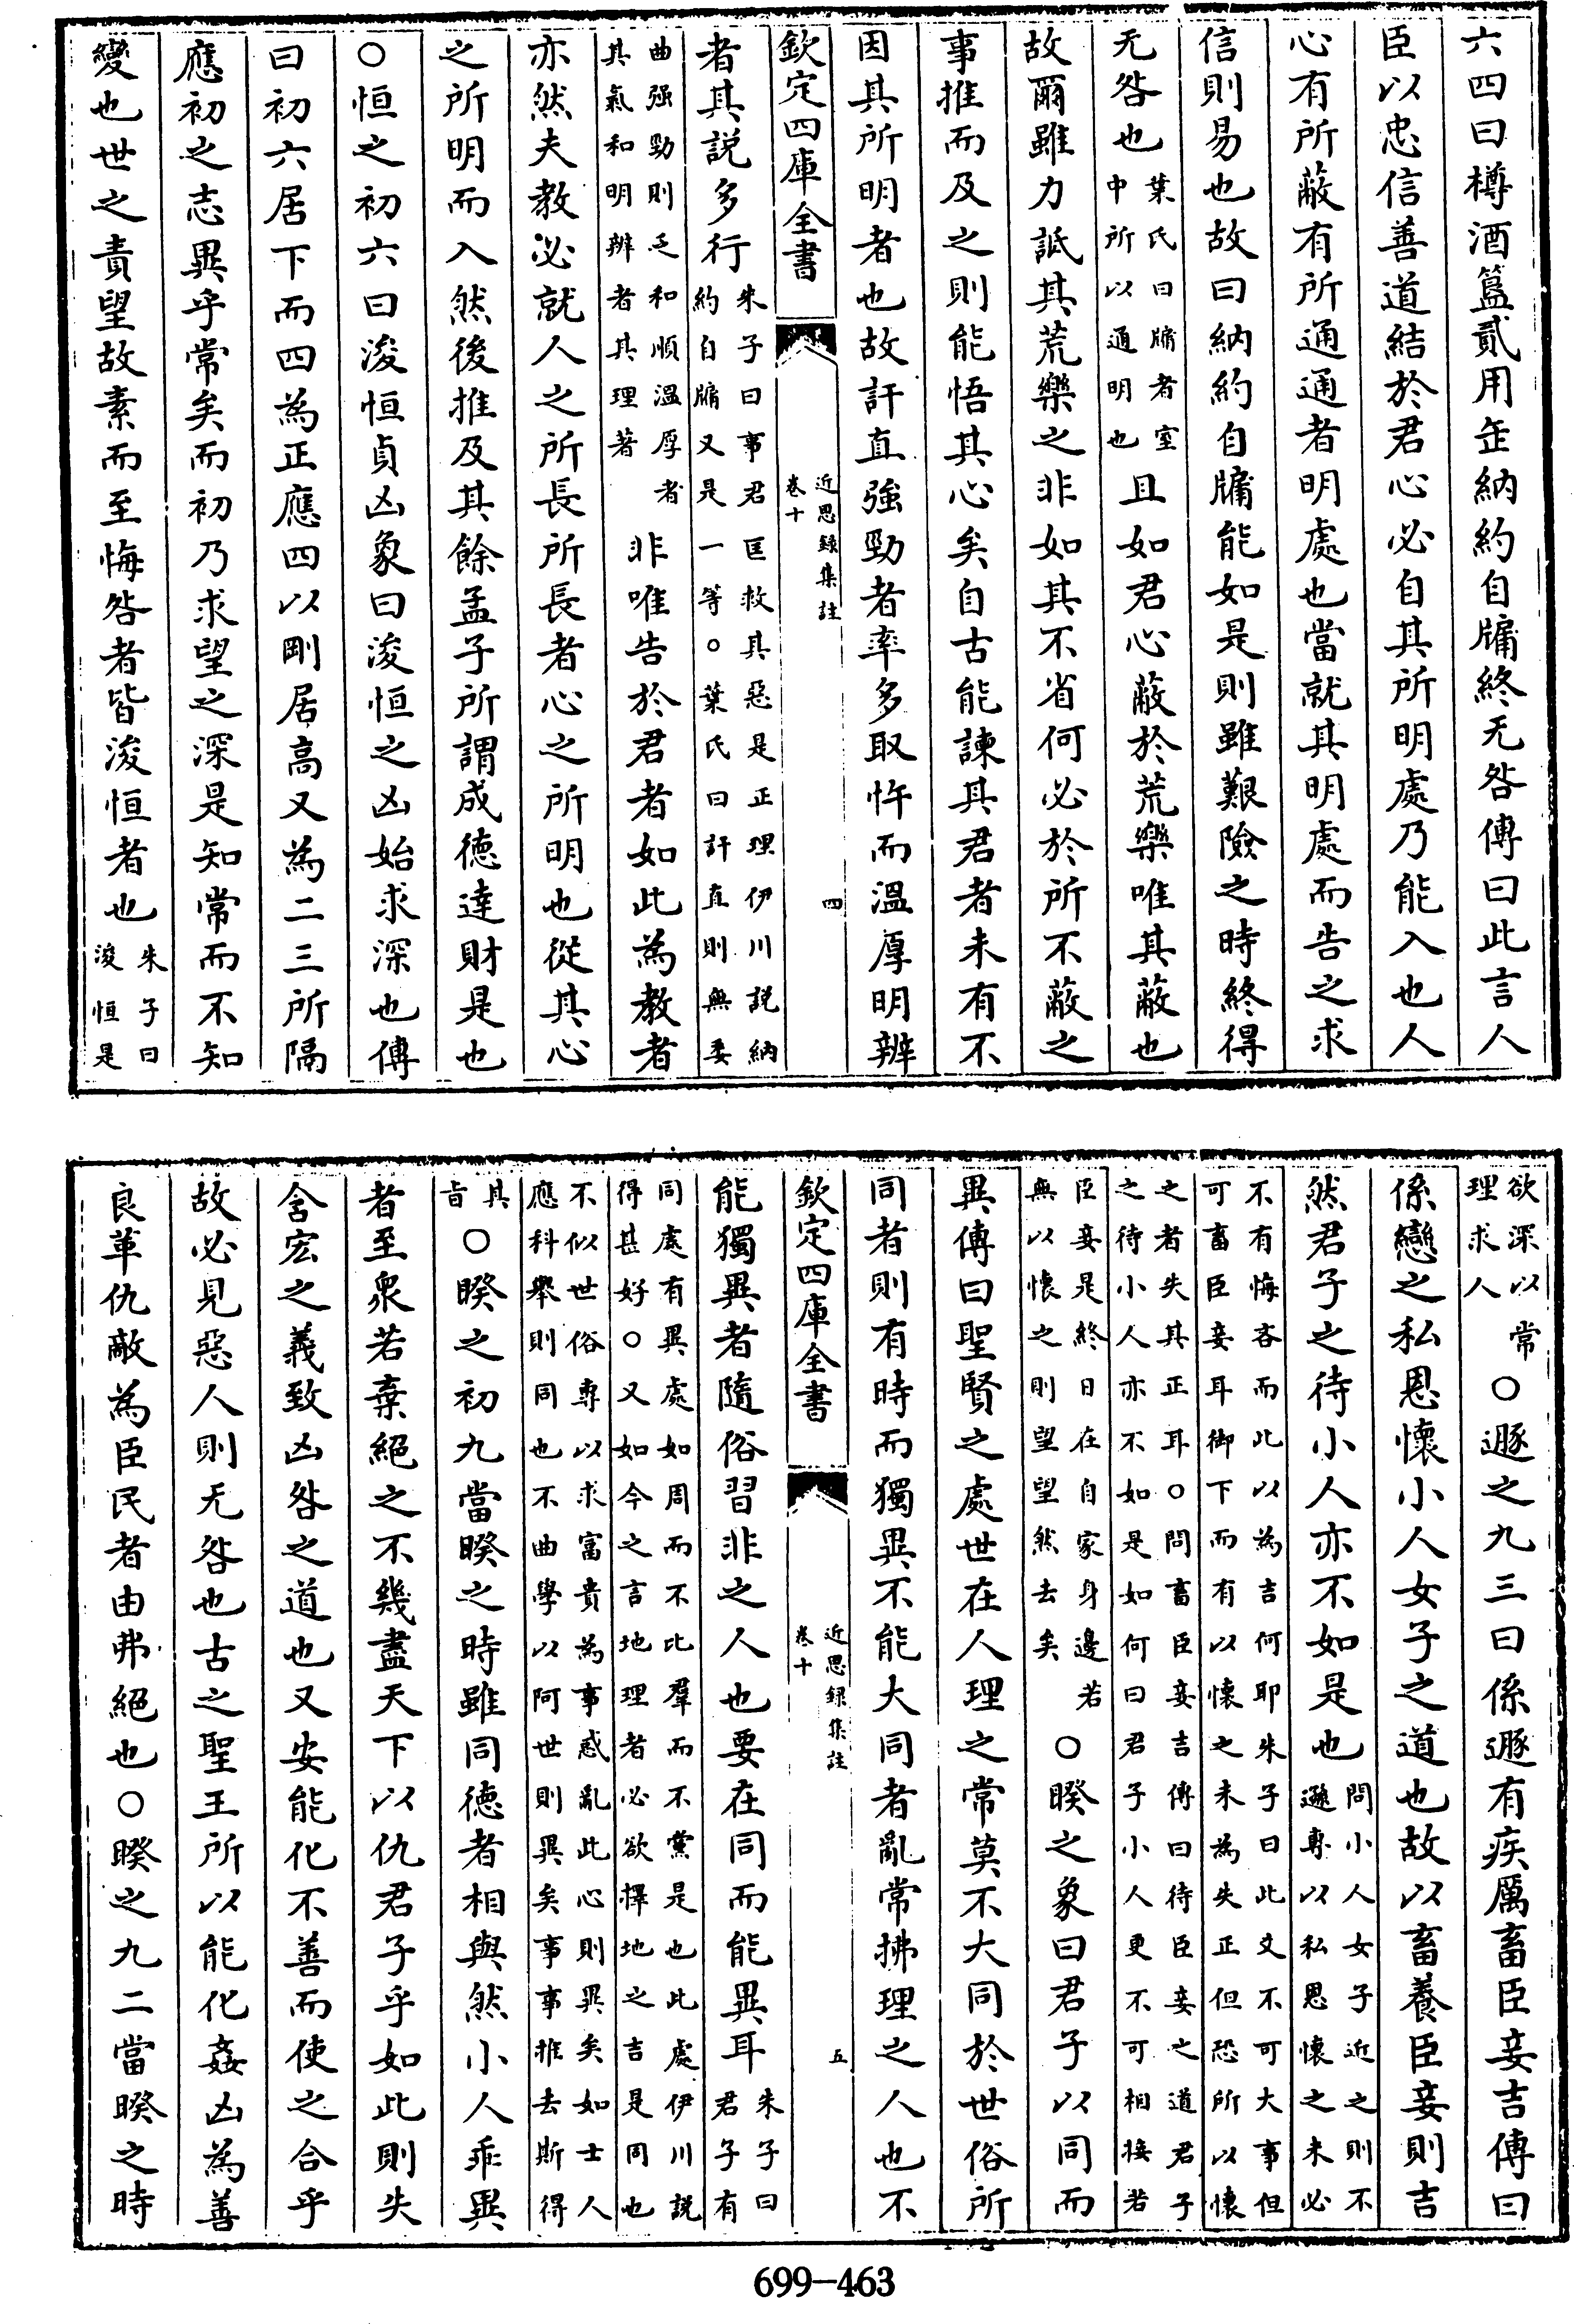 六四曰樽酒簋貳用缶納約自牖終无咎傳曰此言人
臣以忠信善道結於君心必自其所明處乃能入也人
心有所蔽有所通通者明處也當就其明處而告之求
信則易也故曰納約自牖能如是則雖艱險之時終得
无咎也葉氏曰牖者室中所以通明也且如君心蔽於荒樂唯其蔽也
故爾雖力詆其荒樂之非如其不省何必於所不蔽之
事推而及之則能悟其心矣自古能諫其君者未有不
因其所明者也故訐直強勁者率多取忤而溫厚明辨
欽定四庫全書 近思録集註 卷十 四
者其説多行朱子曰事君匡救其惡是正理伊川説納約自牖又是一等○葉氏曰訐直則無委
曲强勁則乏和順溫厚者其氣和明辨者其理著非唯告於君者如此為教者
亦然夫教必就人之所長所長者心之所明也從其心
之所明而入然後推及其餘孟子所謂成德達財是也
○恒之初六曰浚恒貞凶象曰浚恒之凶始求深也傳
曰初六居下而四為正應四以剛居高又為二三所隔
應初之志異乎常矣而初乃求望之深是知常而不知
變也世之責望故素而至悔咎者皆浚恒者也朱子曰浚恒是
欲深以常理求人○遯之九三曰係遯有疾厲畜臣妾吉傳曰
係戀之私恩懷小人女子之道也故以畜養臣妾則吉
然君子之待小人亦不如是也問小人女子近之則不遜專以私恩懷之未必
不有悔吝而此以為吉何耶朱子曰此爻不可大事但可畜臣妾耳御下而有以懷之未為失正但恐所以懷
之者失其正耳○問畜臣妾吉傳曰待臣妾之道君子之待小人亦不如是如何曰君子小人更不可相接若
臣妾是終日在自家身邊若無以懷之則望望然去矣○睽之象曰君子以同而
異傳曰聖賢之處世在人理之常莫不大同於世俗所
同者則有時而獨異不能大同者亂常拂理之人也不
欽定四庫全書 近思録集註 卷十 五
能獨異者隨俗習非之人也要在同而能異耳朱子曰君子有
同處有異處如周而不比羣而不黨是也此處伊川説得甚好○又如今之言地理者必欲擇地之吉是同也
不似世俗專以求富貴為事惑亂此心則異矣如士人應科舉則同也不曲學以阿世則異矣事事推去斯得
其旨○睽之初九當睽之時雖同德者相與然小人乖異
者至衆若棄絕之不幾盡天下以仇君子乎如此則失
含宏之義致凶咎之道也又安能化不善而使之合乎
故必見惡人則无咎也古之聖王所以能化姦凶為善
良革仇敵為臣民者由弗絕也○睽之九二當睽之時
699-463